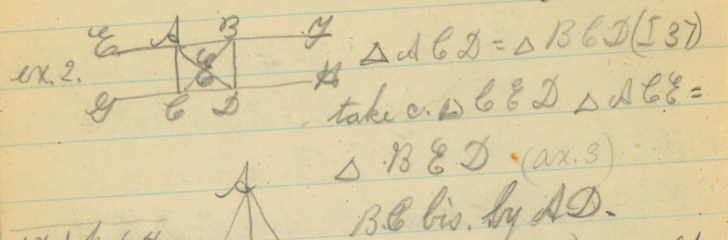 ex. 2.
E A B F
E
G C D H
△ ACD = △ BCD (I 37)
take c. △ CED △ ACE =
△ BED (ax. 3)
BC bis. by AD.
A